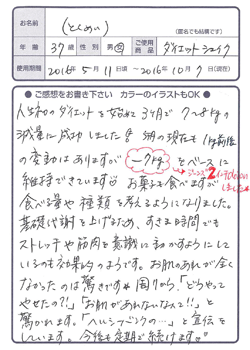 お名前
(とくめい)
(匿名でも結構です)
年齢 37歳 性別 男・女 ご使用商品 ダイエットシェイク
使用期間 2016年5月11日頃 ～ 2016年10月7日(現在)
● ご感想をお書き下さい カラーのイラストもOK ●
人生初のダイエットを始めて3ヶ月で7～8kgの
減量に成功しました 5ヶ月の現在も 1kg前後
の変動はありますが −7kg をベースに
維持できています お菓子も食べますが
食べる量や種類を考えるようになりました。
基礎代謝を上げるため、すきま時間でも
ストレッチや筋肉を意識して動かすようにして
いるのも効果的のようです。お肌のあれが全く
なかったのは驚きです 周りから!「どうやって
やせたの?!」「お肌があれないなんて!!」と
驚かれます。「ヘルシーワンの…」と宣伝を
しています。今後も定期で続けます!